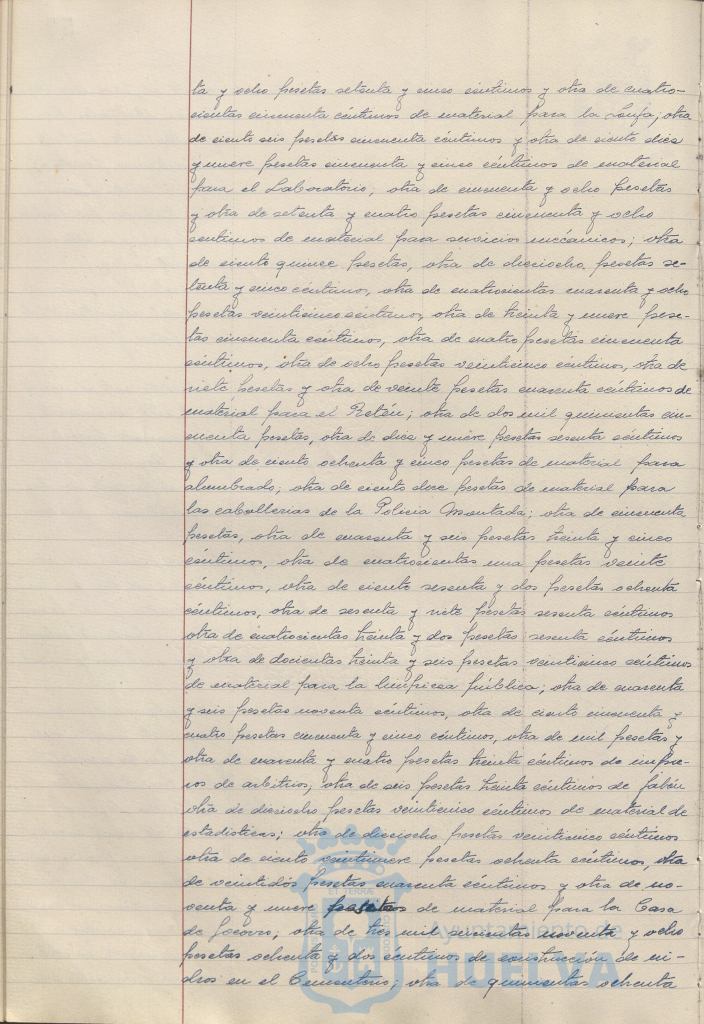 ta y ocho pesetas setenta y cinco céntimos y otra de cuatro-
cientas cincuenta céntimos de material para la Lonja; otra
de ciento seis pesetas cincuenta céntimos y otra de ciento diez
y nueve pesetas cincuenta y cinco céntimos de material
para el Laboratorio; otra de cincuenta y ocho pesetas
y otra de setenta y cuatro pesetas cincuenta y ocho
centimos de material para servicios mecánicos; otra
de ciento quince pesetas, otra de dieciocho pesetas se-
tenta y cinco céntimos, otra de cuatrocientas cuarenta y ocho
pesetas veinticinco céntimos, otra de treinta y nueve pese-
tas cincuenta céntimos, otra de cuatro pesetas cincuenta
céntimos, otra de ocho pesetas veinticinco céntimos, otra de
siete pesetas y otra de veinte pesetas cuarenta céntimos de
material para el Retén; otra de dos mil quinientas cin-
cuenta pesetas, otra de diez y nueve pesetas sesenta céntimos
y otra de ciento ochenta y cinco pesetas de material para
alumbrado; otra de ciento doce pesetas de material para
las caballerias de la Policia Montada; otra de cincuenta
pesetas, otra de cuarenta y seis pesetas treinta y cinco
céntimos, otra de cuatrocientas una pesetas veinte
céntimos, otra de ciento sesenta y dos pesetas ochenta
céntimos, otra de sesenta y siete pesetas sesenta céntimos
otra de cuatrocientas treinta y dos pesetas sesenta céntimos
y otra de docientas treinta y seis pesetas veinticinco céntimos
de material para la limpieza pública; otra de cuarenta
y seis pesetas noventa céntimos, otra de ciento cincuenta y
cuatro pesetas cincuenta y cinco céntimos, otra de mil pesetas y
otra de cuarenta y cuatro pesetas treinta céntimos de impre-
sos de arbitrios; otra de seis pesetas treinta céntimos de jabón
otra de dieciocho pesetas veinticinco céntimos de material de
estadisticas; otra de dieciocho pesetas veinticinco céntimos
otra de ciento veintinueve pesetas ochenta céntimos, otra
de veintidós pesetas cuarenta céntimos y otra de no-
venta y nueve pesetas de material para la Casa
de Socorro; otra de tres mil noventa y ocho
pesetas ochenta y dos céntimos de construcción de ni-
chos en el Cementerio; otra de quinientas ochenta
Ayuntamiento de
HUELVA